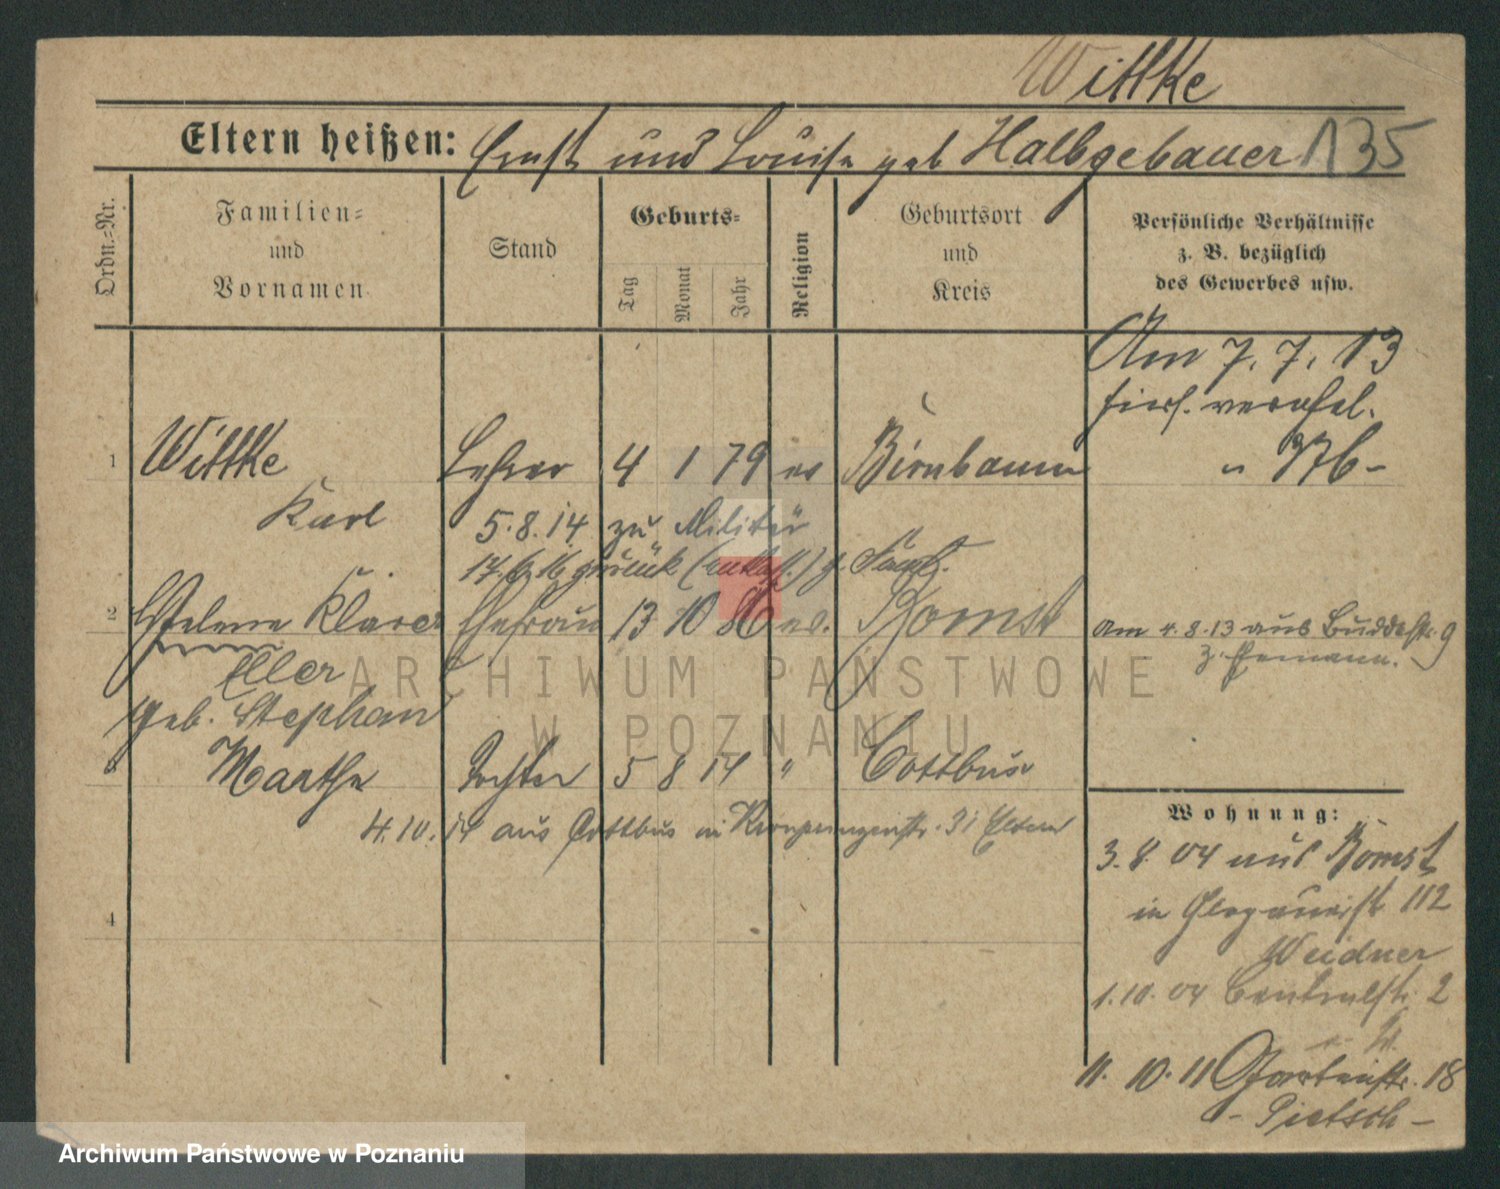 Wittke
Eltern heißen: Ernst und Louise geb Halbgebauer 135
Ordn.-Nr.
Familien-
und
Vornamen
Stand
Geburts-
Tag
Monat
Jahr
Religion
Geburtsort
und
Kreis
Persönliche Verhältnisse
z. B. bezüglich
des Gewerbes usw.
Am 7. 7. 13
hier verehel.
1 Wittke Lehrer 4 1 79 ev Birnbaum
Karl
5.8.14 zu Militär
zurück
2 Helene Klara Ehefrau 13 10 86 ev. Bomst
am 4.8.13 aus Buddestr. 9
z. Ehemann.
Eller
geb. Stephan
3 Marthe Tochter 5 8 14 " Cottbus
4.10.14 aus Cottbus in Kronprinzenstr. 31 Eltern
4
Wohnung:
3.8.04 aus Bomst
in Glogauerstr 112
Weidner
1.10.04 Centralstr. 2
11.10.11 Gartenstr. 18
- Pietsch -
ARCHIWUM PAŃSTWOWE
W POZNANIU
Archiwum Państwowe w Poznaniu